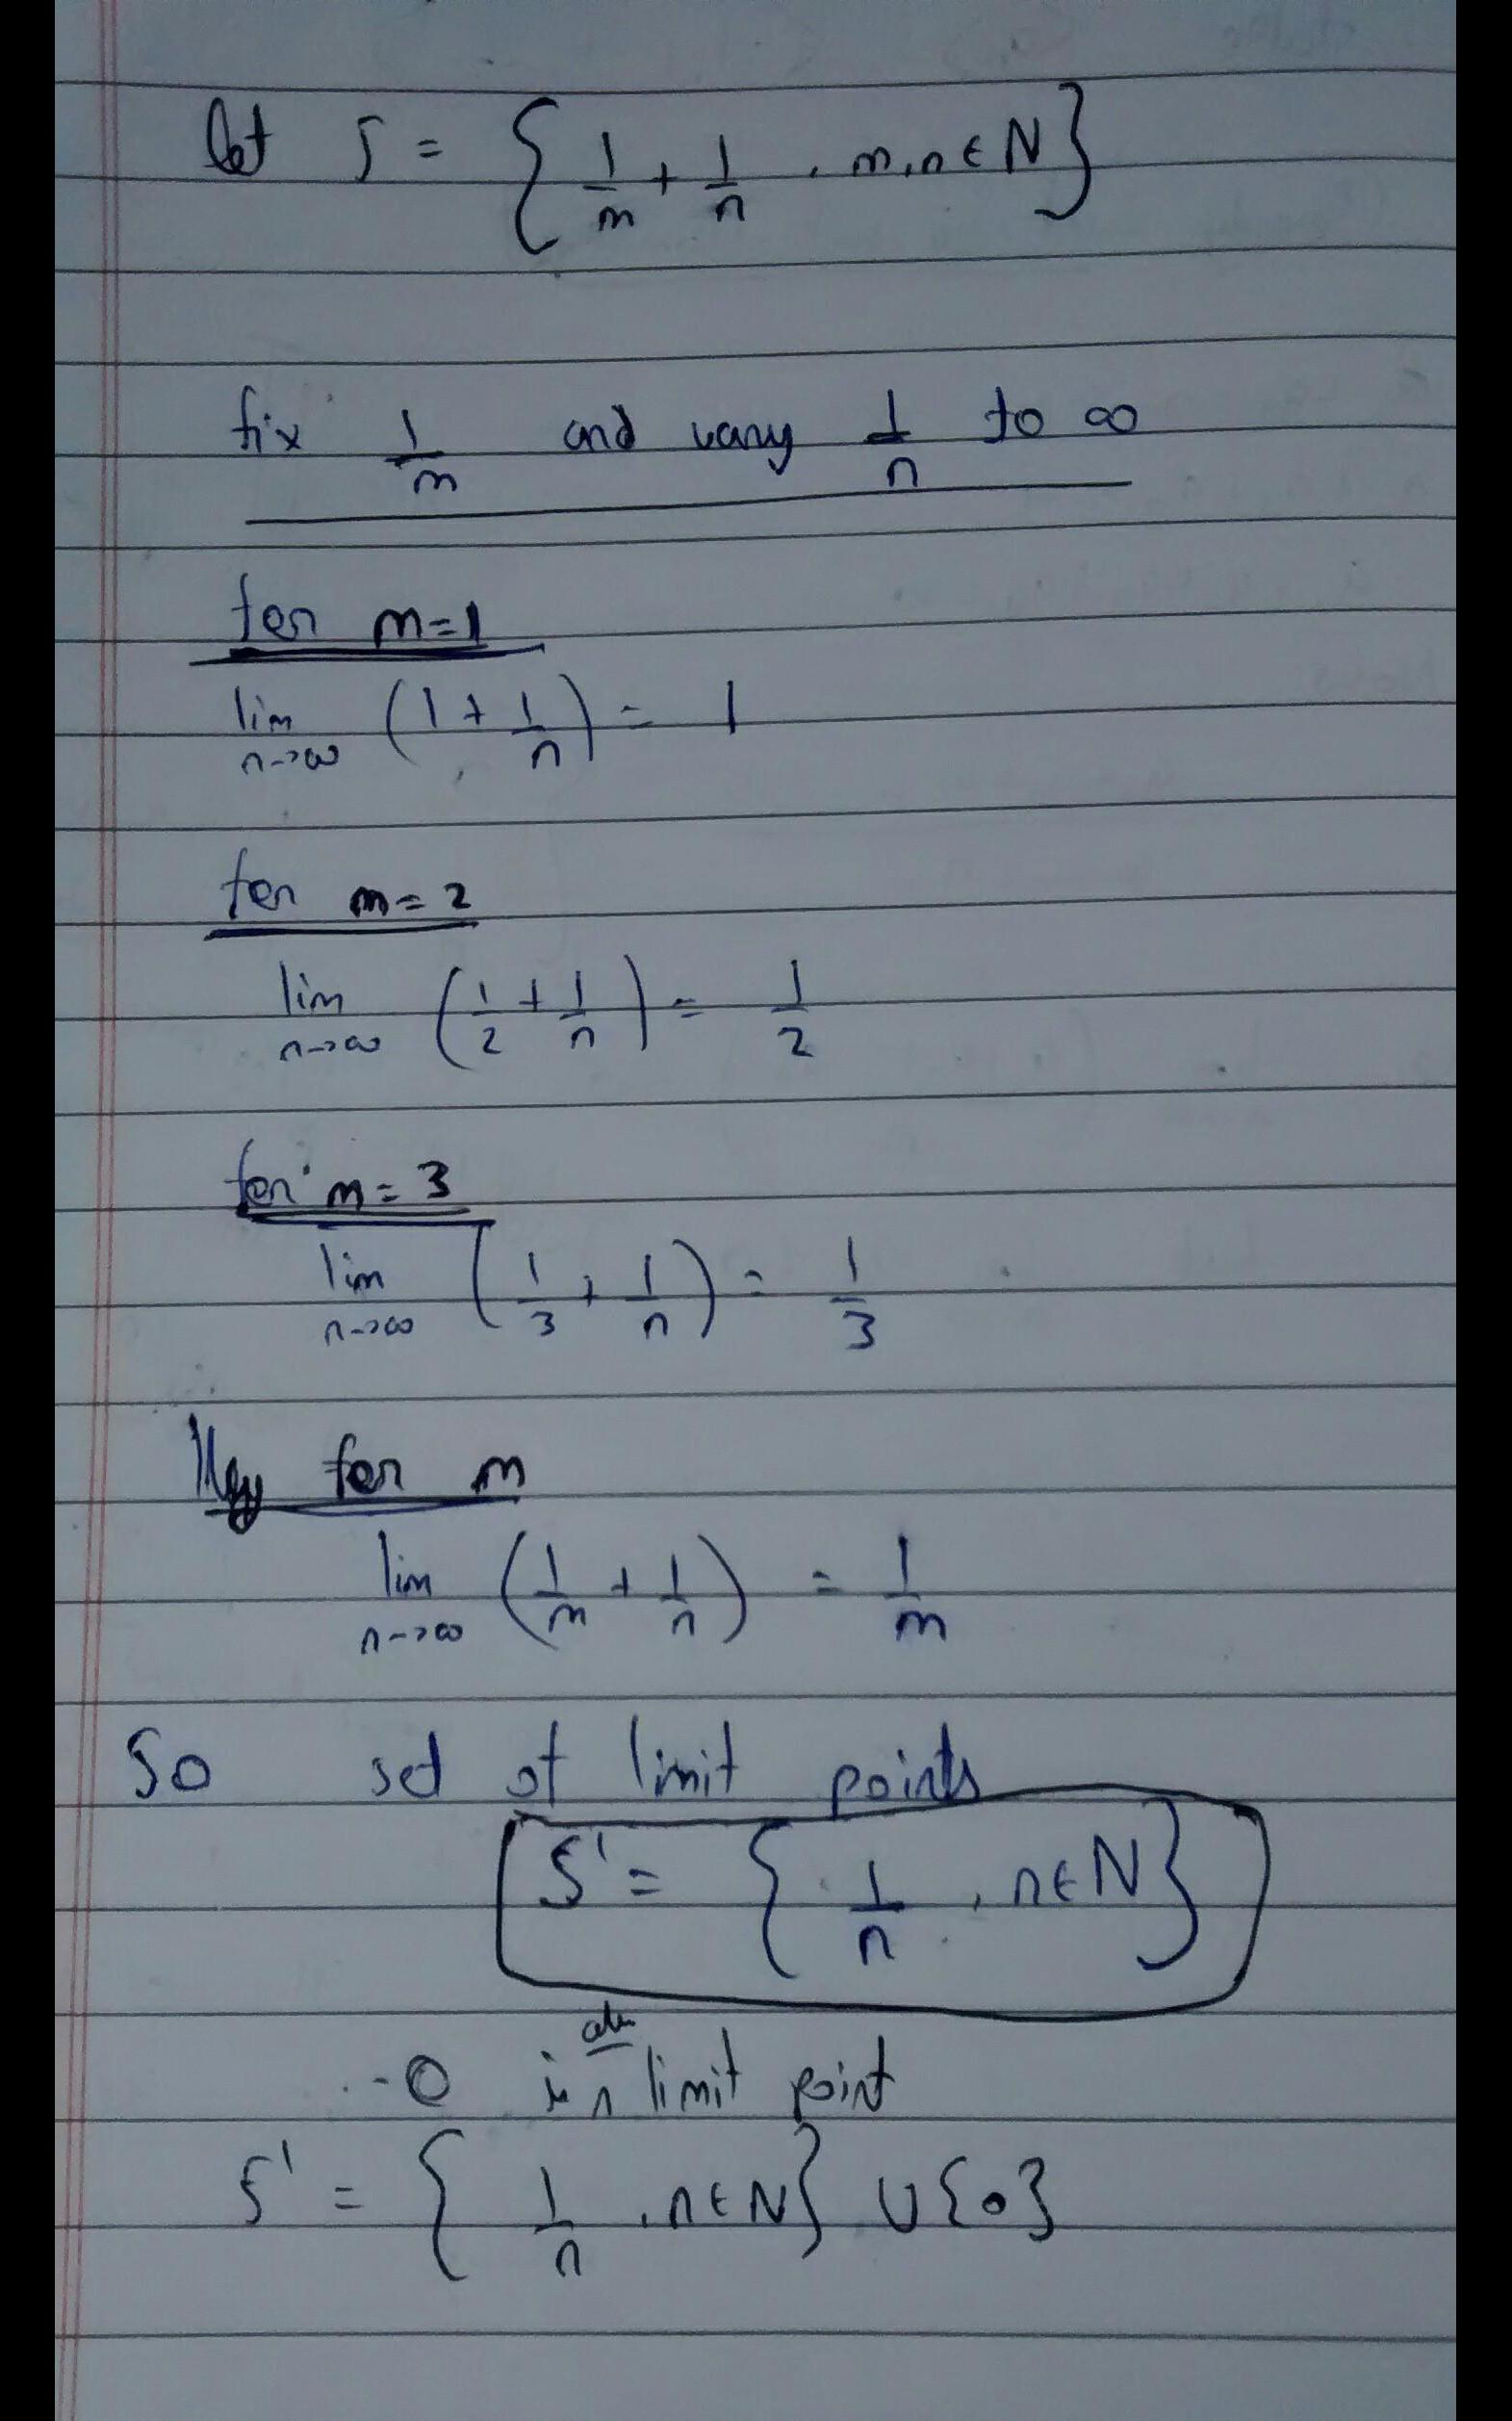 let S = { 1/m + 1/n , m,n ∈ N }
fix 1/m and vary 1/n to ∞
for m=1
lim n→∞ (1 + 1/n) = 1
for m=2
lim n→∞ (1/2 + 1/n) = 1/2
for m=3
lim n→∞ (1/3 + 1/n) = 1/3
lly for m
lim n→∞ (1/m + 1/n) = 1/m
So set of limit points
S' = { 1/n , n∈N }
0 is also limit point
S' = { 1/n , n∈N } ∪ {0}